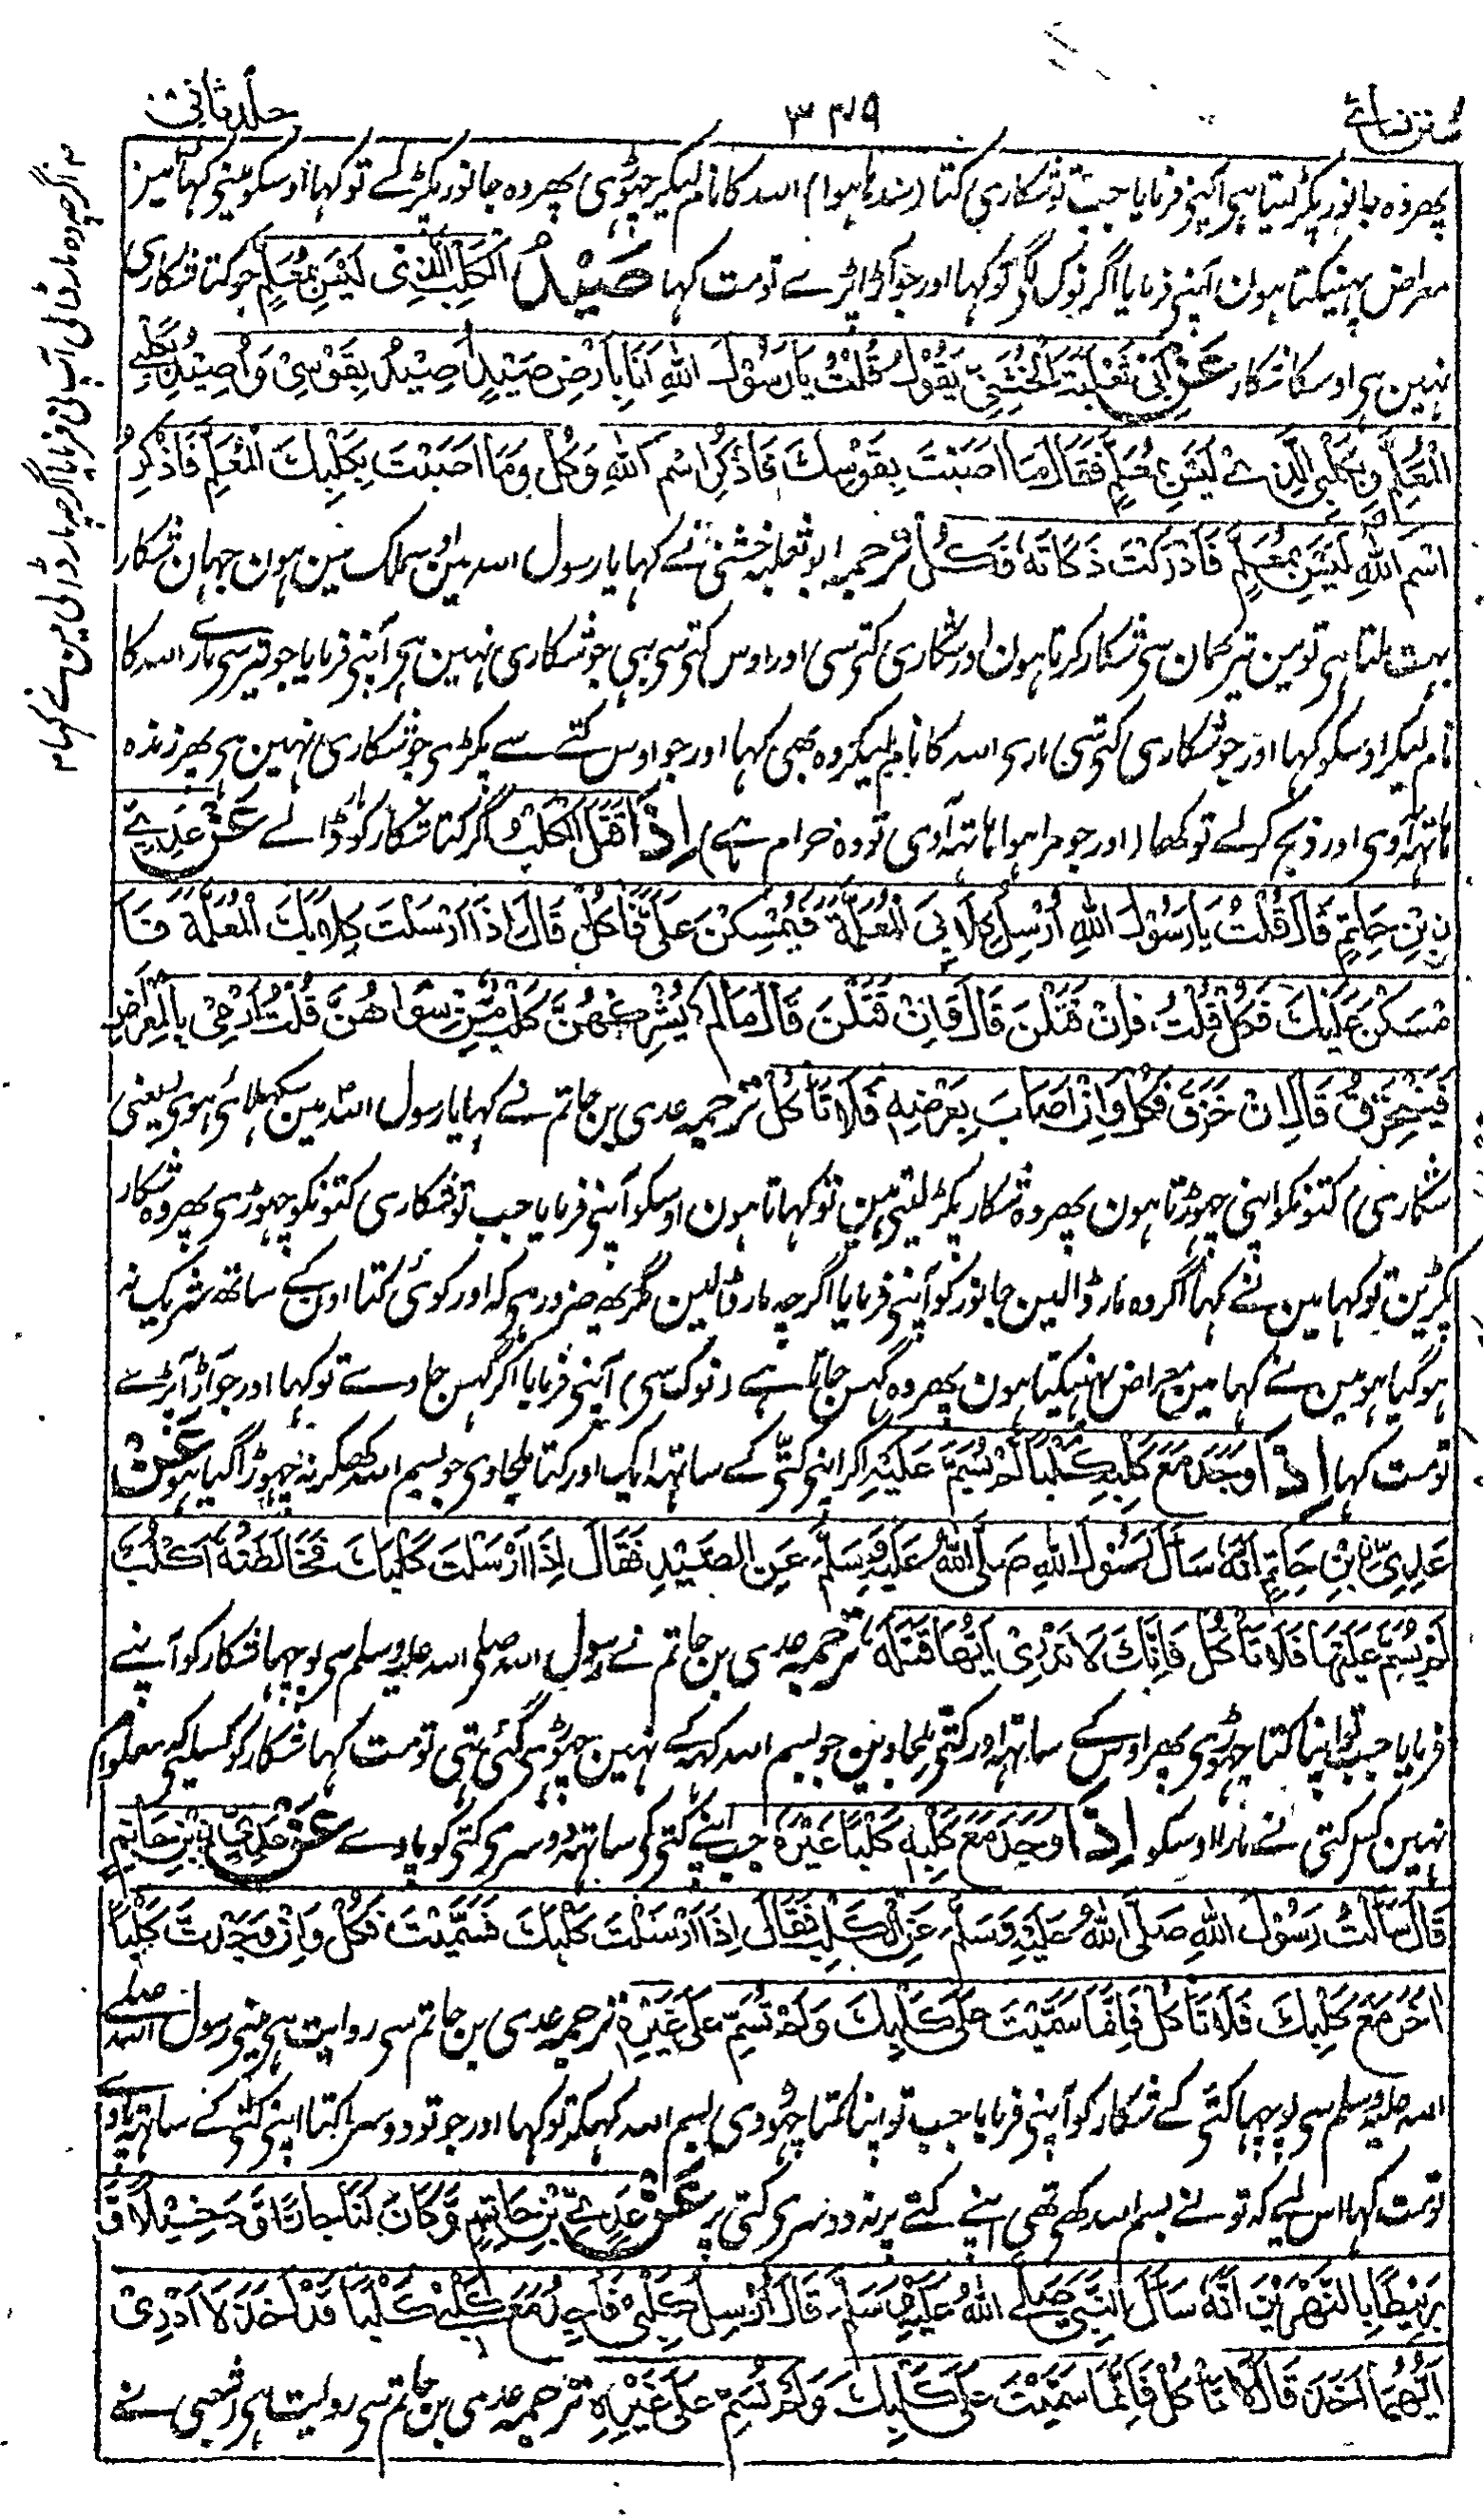 سنن نسائے ۳۴۹ جلد ثانی
پھر وہ جانور پکڑ لیتا ہی آپنی فرمایا جب تو شکاری کتا (سدہا ہوا) اللہ کا نام لیکر چھوڑی پھر وہ جانور پکڑ لے تو کہا اوسکو مینی کہا مین
معراض پہینکتا ہون آپنی فرمایا اگر نوک لگی تو کہا اور جو آڑا پڑے تو مت کہا صَيْدُ الْكَلْبِ الَّذِى لَيْسَ بِمُعَلَّمٍ جو کتا شکاری
نہین ہی اوسکا شکار عَنْ اَبِىْ ثَعْلَبَةَ الْخُشَنِىِّ يَقُوْلُ قُلْتُ يَا رَسُوْلَ اللّٰهِ اَنَا بِاَرْضِ صَيْدٍ اَصِيْدُ بِقَوْسِىْ وَاَصِيْدُ بِكَلْبِى
الْمُعَلَّمِ وَبِكَلْبِى الَّذِىْ لَيْسَ بِمُعَلَّمٍ فَقَالَ مَا اَصَبْتَ بِقَوْسِكَ فَاذْكُرِ اسْمَ اللّٰهِ وَكُلْ وَمَا اَصَبْتَ بِكَلْبِكَ الْمُعَلَّمِ فَاذْكُرِ
اسْمَ اللّٰهِ لَيْسَ بِمُعَلَّمٍ فَاَدْرَكْتَ ذَكَاتَهٗ فَكُلْ ترجمہ ابو ثعلبہ خشنی نے کہا یا رسول اللہ مین اوس ملک مین ہون جہان شکار
بہت ملتا ہی تو مین تیر کمان سی شکار کرتا ہون اور شکاری کتی سی اور اوس کتی سی بہی جو شکاری نہین ہی آپنی فرمایا جو تیر سی مارے اللہ کا
نام لیکر اوسکو کہا اور جو شکاری کتی سی ماری اللہ کا نام لیکر وہ بھی کہا اور جو اوس کتے سے پکڑی جو شکاری نہین ہی پھر زندہ
ہاتہہ آوی اور ذبح کرلے تو کھا (اور جو مرا ہوا ہاتہہ آوی تو وہ حرام ہے) اِذَا قَتَلَ الْكَلْبُ اگر کتا شکار کو مار ڈالے عَنْ عَدِىِّ
بْنِ حَاتِمٍ قَالَ قُلْتُ يَا رَسُوْلَ اللّٰهِ اُرْسِلُ كِلَابِىَ الْمُعَلَّمَةَ فَيُمْسِكْنَ عَلَىَّ فَاٰكُلُ قَالَ اِذَا اَرْسَلْتَ كِلَابَكَ الْمُعَلَّمَةَ فَاَ
مْسَكْنَ عَلَيْكَ فَكُلْ قُلْتُ وَاِنْ قَتَلْنَ قَالَ وَاِنْ قَتَلْنَ قَالَ مَا لَمْ يُشْرِكْهُنَّ كَلْبٌ مِّنْ سِوَاهُنَّ قُلْتُ اَرْمِىْ بِالْمِعْرَاضِ
فَيَخْزِقُ قَالَ اِنْ خَزَقَ فَكُلْ وَاِنْ اَصَابَ بِعَرْضِهٖ فَلَا تَاْكُلْ ترجمہ عدی بن حاتم نے کہا یا رسول اللہ مین سکہلائی ہوی (یعنی
شکاری) کتونکو اپنی چھوڑتا ہون پھر وہ شکار پکڑ لیتی ہین تو کہاتا ہون اوسکو آپنی فرمایا جب تو شکاری کتونکو چہوڑی پھر وہ شکار
پکڑین تو کہا مین نے کہا اگر وہ مار ڈالین جانور کو آپنی فرمایا اگرچہ مار ڈالین مگر یہ ضرور ہی کہ اور کوئی کتا اون کے ساتھ شریک نہ
ہو گیا ہو مین نے کہا مین معراض پہینکتا ہون پھر وہ گہس جاتا ہے (نوک سی) آپنی فرمایا اگر گہس جاوے تو کہا اور جو آڑا پڑے
تو مت کہا اِذَا وَجَدَ مَعَ كَلْبِهٖ كَلْبًا لَمْ يُسَمِّ عَلَيْهِ اگر اپنی کتی کے ساتہہ ایک اور کتا ملجاوی جو بسم اللہ کہکر نہ چہوڑا گیا ہو عَنْ
عَدِىِّ بْنِ حَاتِمٍ اَنَّهٗ سَاَلَ رَسُوْلَ اللّٰهِ صَلَّى اللّٰهُ عَلَيْهِ وَسَلَّمَ عَنِ الصَّيْدِ فَقَالَ اِذَا اَرْسَلْتَ كَلْبَكَ فَخَالَطَتْهُ اَكْلُبٌ
لَمْ يُسَمَّ عَلَيْهَا فَلَا تَاْكُلْ فَاِنَّكَ لَا تَدْرِىْ اَيُّهَا قَتَلَهٗ ترجمہ عدی بن حاتم نے رسول اللہ صلی اللہ علیہ وسلم سی پوچہا شکار کو آپنے
فرمایا جب تو اپنا کتا چھوڑی پھر اوس کے ساتہہ اور کتی ملجاوین جو بسم اللہ کہہ کے نہین چھوڑی گئی تہی تو مت کہا شکار کو کسلیے کہ معلوم
نہین کس کتی نے مارا اوسکو اِذَا وَجَدَ مَعَ كَلْبِهٖ كَلْبًا غَيْرَهٗ جب اپنے کتی کی ساتہہ دوسری کتی کو پاوے عَنْ عَدِىِّ بْنِ حَاتِمٍ
قَالَ سَاَلْتُ رَسُوْلَ اللّٰهِ صَلَّى اللّٰهُ عَلَيْهِ وَسَلَّمَ عَنِ الْكَلْبِ فَقَالَ اِذَا اَرْسَلْتَ كَلْبَكَ فَسَمَّيْتَ فَكُلْ وَاِنْ وَجَدْتَ كَلْبًا
اٰخَرَ مَعَ كَلْبِكَ فَلَا تَاْكُلْ فَاِنَّمَا سَمَّيْتَ عَلٰى كَلْبِكَ وَلَمْ تُسَمِّ عَلٰى غَيْرِهٖ ترجمہ عدی بن حاتم سی روایت ہی مینی رسول اللہ صلے
اللہ علیہ وسلم سی پوچہا کتی کے شکار کو آپنی فرمایا جب تو اپنا کتا چھوڑدی بسم اللہ کہکر تو کہا اور جو تو دوسرا کتا اپنی کتی کے ساتہہ پاوے
تو مت کہا اس لیے کہ تو نے بسم اللہ کہی تھی اپنے کتے پر نہ دوسری کتی پر عَنْ عَدِىِّ بْنِ حَاتِمٍ وَّكَانَ لَنَا جَارًا وَّدَخِيْلًا وَّ
رَبِيْطًا بِالنَّهْرَيْنِ اَنَّهٗ سَاَلَ النَّبِىَّ صَلَّى اللّٰهُ عَلَيْهِ وَسَلَّمَ قَالَ اُرْسِلُ كَلْبِىْ فَاَجِدُ مَعَ كَلْبِىْ كَلْبًا قَدْ اَخَذَ لَا اَدْرِىْ
اَيُّهُمَا اَخَذَ قَالَ لَا تَاْكُلْ فَاِنَّمَا سَمَّيْتَ عَلٰى كَلْبِكَ وَلَمْ تُسَمِّ عَلٰى غَيْرِهٖ ترجمہ عدی بن حاتم سی روایت ہی شعبی نے
اگرچہ وہ مار ڈالی آپ نی فرمایا اگرچہ مار ڈالی مین نے کہا